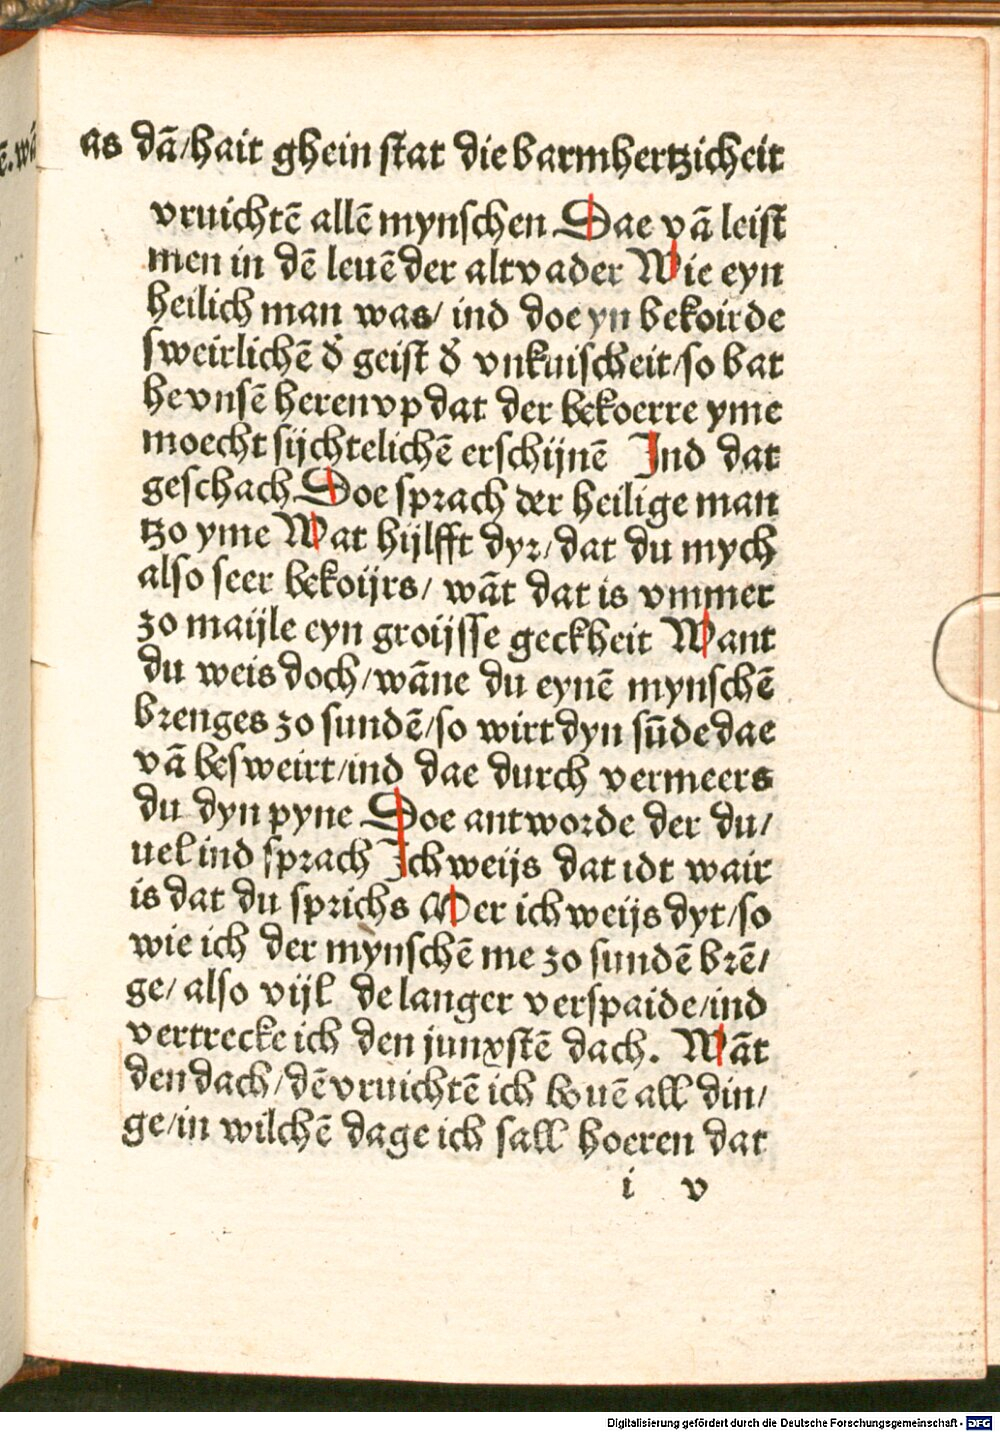 as dā/hait ghein stat die barmhertzicheit
vruichtē allē mynschen Dae vā leist
men in dē leuē der altvader Wie eyn
heilich man was/ ind doe yn bekoirde
sweirlichē d̕ geist d̕ vnkuischeit/so bat
he vnsē heren vp dat der bekoerre yme
moecht sijchtelichē erschijnē Ind dat
geschach Doe sprach der heilige man
tzo yme Wat hijlfft dyr/dat du mych
also seer bekoijrs/ wāt dat is vmmer
zo maijle eyn groijsse geckheit Want
du weis doch/wāne du eynē mynschē
brenges zo sundē/so wirt dyn sūde dae
vā besweirt/ind dae durch vermeers
du dyn pyne Doe antworde der du/
uel ind sprach Ich weijs dat idt wair
is dat du sprichs Mer ich weijs dyt/so
wie ich der mynschē me zo sundē brē/
ge/ also vijl de langer verspaide/ind
vertrecke ich den junxstē dach. Wāt
den dach/dē vruichtē ich bouē all din/
ge/in wilchē dage ich sall hoeren dat
i v
Digitalisierung gefördert durch die Deutsche Forschungsgemeinschaft - DFG